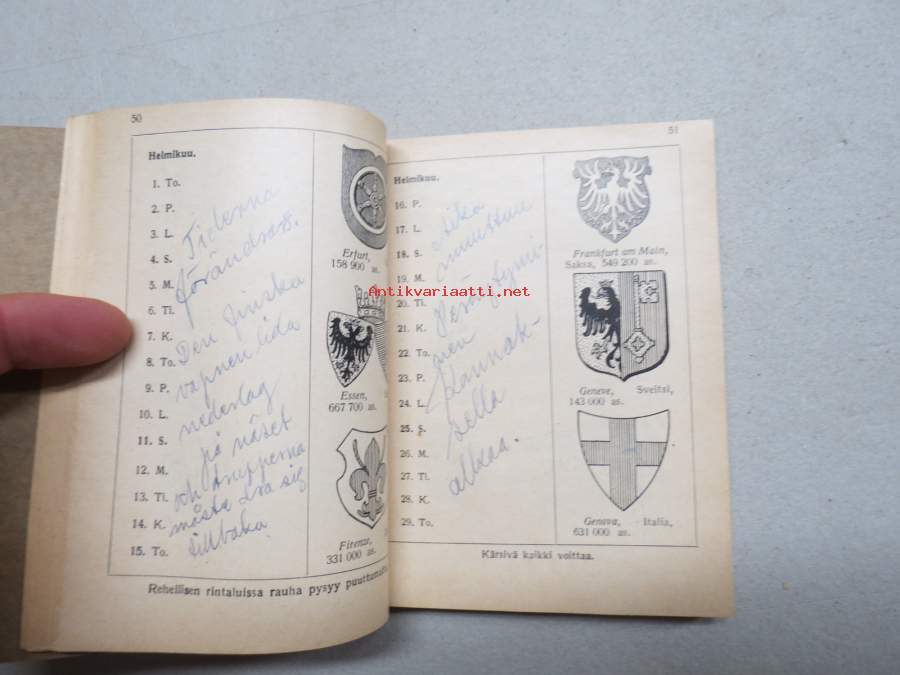 50
Helmikuu.
1. To.
2. P.
3. L.
4. S.
5. M.
6. Ti.
7. K.
8. To.
9. P.
10. L.
11. S.
12. M.
13. Ti.
14. K.
15. To.
Tiderna
förändras.
Den finska
vapnen lida
nederlag
på näset
och trupperna
måste dra sig
tillbaka.
Erfurt,
158 900 as.
Essen,
667 700 as.
Firenze,
331 000 as.
Rehellisen rintaluissa rauha pysyy
51
Helmikuu.
16. P.
17. L.
18. S.
19. M.
20. Ti.
21. K.
22. To.
23. P.
24. L.
25. S.
26. M.
27. Ti.
28. K.
29. To.
Aika
muuttuu
nen Kannak-
sella
alkaa.
Frankfurt am Main,
Saksa, 549 200 as.
Geneve, Sveitsi,
143 000 as.
Genova, Italia,
631 000 as.
Kärsivä kaikki voittaa.
Antikvariaatti.net